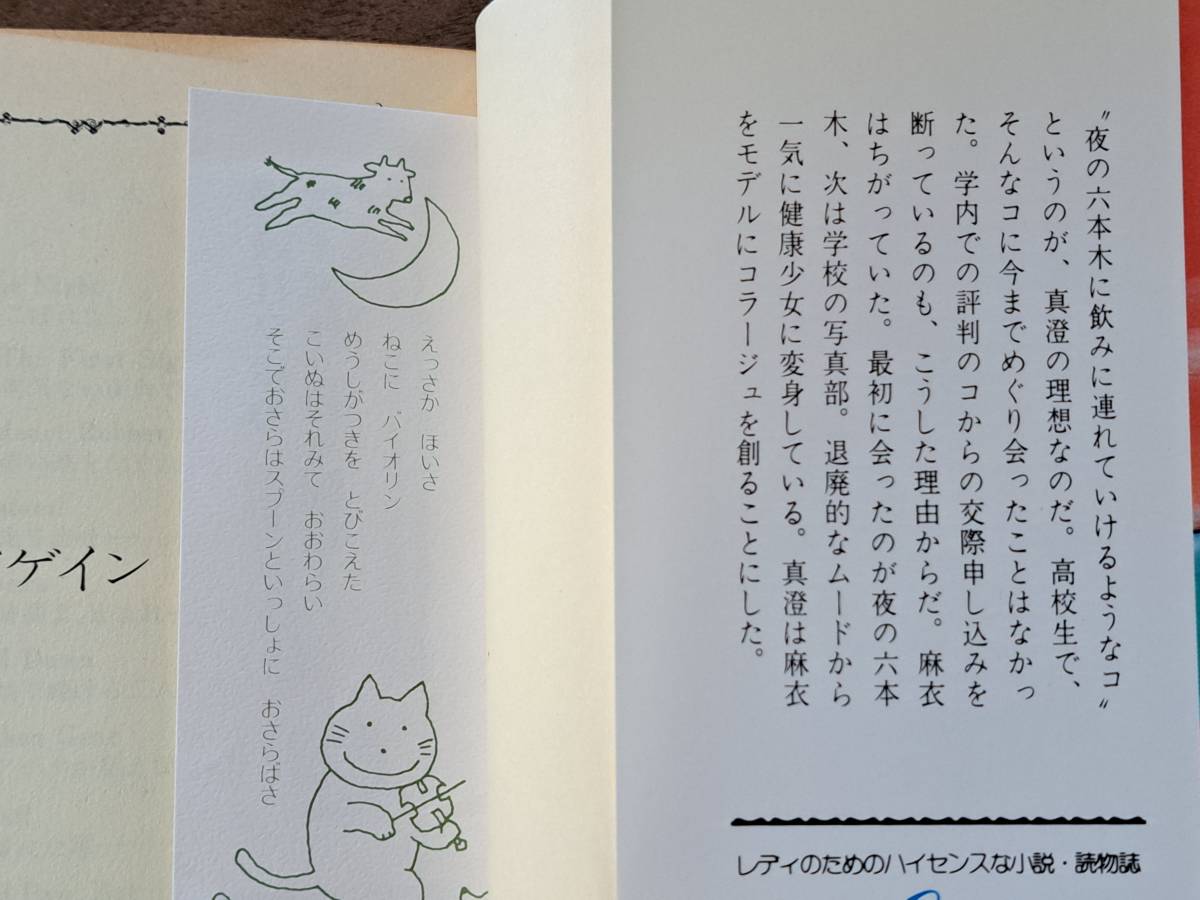 〝夜の六本木に飲みに連れていけるようなコ〟
というのが、真澄の理想なのだ。高校生で、
そんなコに今までめぐり会ったことはなかっ
た。学内での評判のコからの交際申し込みを
断っているのも、こうした理由からだ。麻衣
はちがっていた。最初に会ったのが夜の六本
木、次は学校の写真部。退廃的なムードから
一気に健康少女に変身している。真澄は麻衣
をモデルにコラージュを創ることにした。
レディのためのハイセンスな小説・読物誌
えっさか ほいさ
ねこに バイオリン
めうしがつきを とびこえた
こいぬはそれみて おおわらい
そこでおさらはスプーンといっしょに おさらばさ
アゲイン